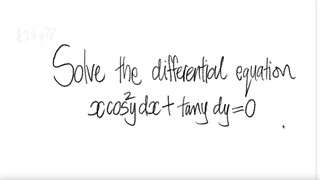 Solve the differential equation
xcos²y dx + tany dy = 0